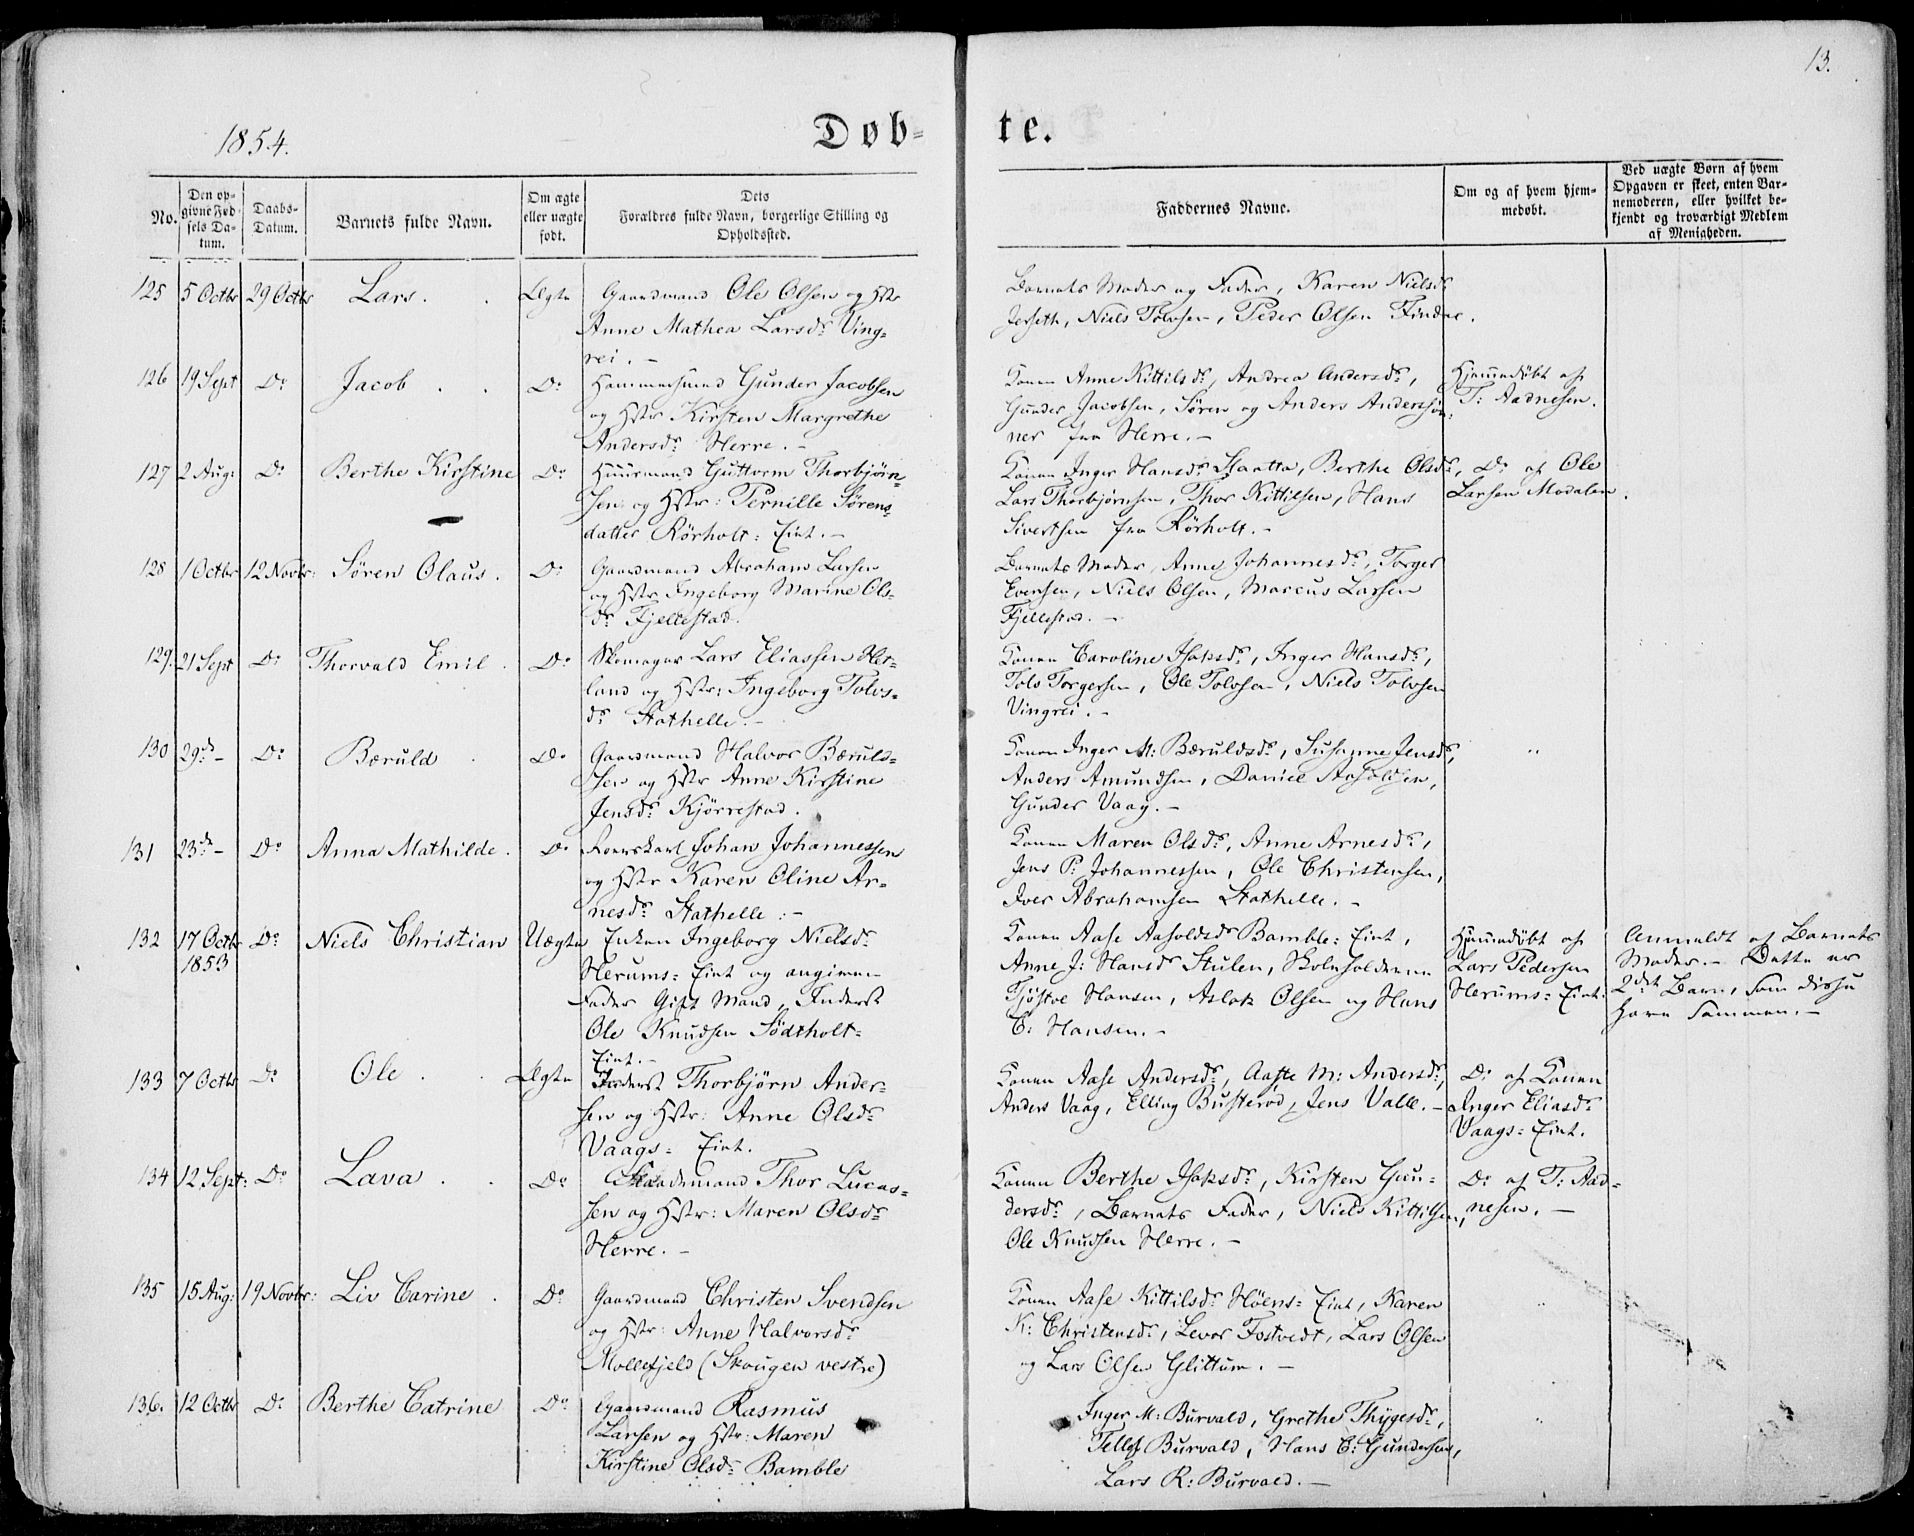 13.
1854.
Døb-
te.
No.
Den op-
givne Fød-
sels Da-
tum.
Daabs-
Datum.
Barnets fulde Navn.
Om ægte
eller uægte
født.
Dets
Forældres fulde Navn, borgerlige Stilling og
Opholdssted.
Faddernes Navne.
Om og af hvem hjem-
medøbt.
Ved uægte Børn af hvem
Opgaven er skeet, enten Bar-
nemoderen, eller hvilket be-
kjendt og troværdigt Medlem
af Menigheden.
125 5 Octbr 29 Octbr Lars. Ægte
Gaardmand Ole Olsen og Hstr
Anne Mathea Larsdr Ving-
rei. -
Barnets Moder og Fader, Karen Nielsdr
Jerseth, Niels Tolvsen, Peder Olsen Findal.
126 19 Sept Do Jacob. Do
Hammersmed Gunder Jacobsen
og Hstr Kirsten Margrethe
Andersdr Herre. -
Konen Anne Kittilsdr, Andrea Andersdr,
Gunder Jacobsen, Søren og Anders Andersøn-
ner fra Herre. -
Hjemmedøbt af
T: Aadnesen.
127 2 Aug: Do Berthe Kirstine Do
Huusmand Guttorm Thorbjørn-
sen og Hstr: Pernille Sørens-
datter Rørholt: Eiet. -
Konen Inger Hansdr Slaatta, Berthe Olsdr,
Lars Thorbjørnsen, Thor Kittilsen, Hans
Sivertsen fra Rørholt. -
Do af Ole
Larsen Modalen.
128 1 Octbr 12 Novbr: Søren Olaus. Do
Gaardmand Abraham Larsen
og Hstr Ingeborg Marine Ols-
dr Fjellestad.
Barnets Moder, Anne Johannesdr, Torger
Evensen, Niels Olsen, Marcus Larsen
Fjellestad. -
129. 21 Sept Do Thorvald Emil. Do
Skomager Lars Eliassen Het-
land og Hstr: Ingeborg Tolvs-
dr Stathelle. -
Konen Caroline Isaksdr, Inger Hansdr,
Tols Torgersen, Ole Tolvsen, Niels Tolvsen
Vingrei. -
130 29de - Do Bæruld. Do
Gaardmand Halvor Bæruls-
sen og Hstr Anne Kirstine
Jensdr Kjørrestad.
Konen Inger M: Bæruldsdr, Susanne Jensdr,
Anders Amundsen, Daniel Aasoldsen,
Gunder Vaag. -
"
131 23de - Do Anna Mathilde. Do
Roerskarl Johan Johannessen
og Hstr Karen Oline Ar-
nesdr Stathelle: -
Konen Maren Olsdr, Anne Arnesdr,
Jens P: Johannessen, Ole Christensen,
Iver Abrahamsen Stathelle. -
132 17 Octbr 1853 Do Niels Christian Uægte
Enken Ingeborg Nielsdr
Herums= Eiet og angiven
Fader Gift Mand, Inderst
Ole Knudsen Södtholt=
Eiet. -
Konen Aase Aasoldsdr Bamble= Eiet,
Anne J: Hansdr Stulen, Skoleholderne
Tjöstve Hansen, Aslak Olsen og Hans
C: Hansen. -
Hjemmedøbt af
Lars Pedersen
Herums= Eiet.
Anmeldt af Barnets
Moder. - Dette er
2det Barn, som disse
have sammen. -
133 7 Octbr Do Ole. Ægte
Inderst Thorbjørn Ander-
sen og Hstr: Anne Olsdr
Vaags= Eiet.
Konen Aase Andersdr, Aaste M: Andersdr,
Anders Vaag, Elling Busterød, Jens Valle. -
Do af Konen
Inger Eliasdr
Vaags= Eiet.
134 12 Sept: Do Lava. Do
Gaardmand Thor Lucas-
sen og Hstr: Maren Olsdr
Herre. -
Konen Berthe Isaksdr, Kirsten Gun-
dersdr, Barnets Fader, Niels Kittilsen,
Ole Knudsen Herre. -
Do af T: Aad-
nesen. -
135 15 Aug: 19 Novbr: Liv Carine. Do
Gaardmand Christen Svendsen
og Hstr: Anne Halvorsdr
Mollefjeld (Skougen vestre)
Konen Aase Kittilsdr Höens= Eiet, Karen
K: Christensdr, Levor Fostvedt, Lars Olsen
og Lars Olsen Glittum. -
"
136. 12 Octbr Do Berthe Catrine Do
Gaardmand Rasmus
Larsen og Hstr: Maren
Kirstine Olsdr Bamble
Inger M: Burvald, Grethe Thygesdr,
Tellef Burvald, Hans C: Gundersen,
Lars R: Burvald. -
"